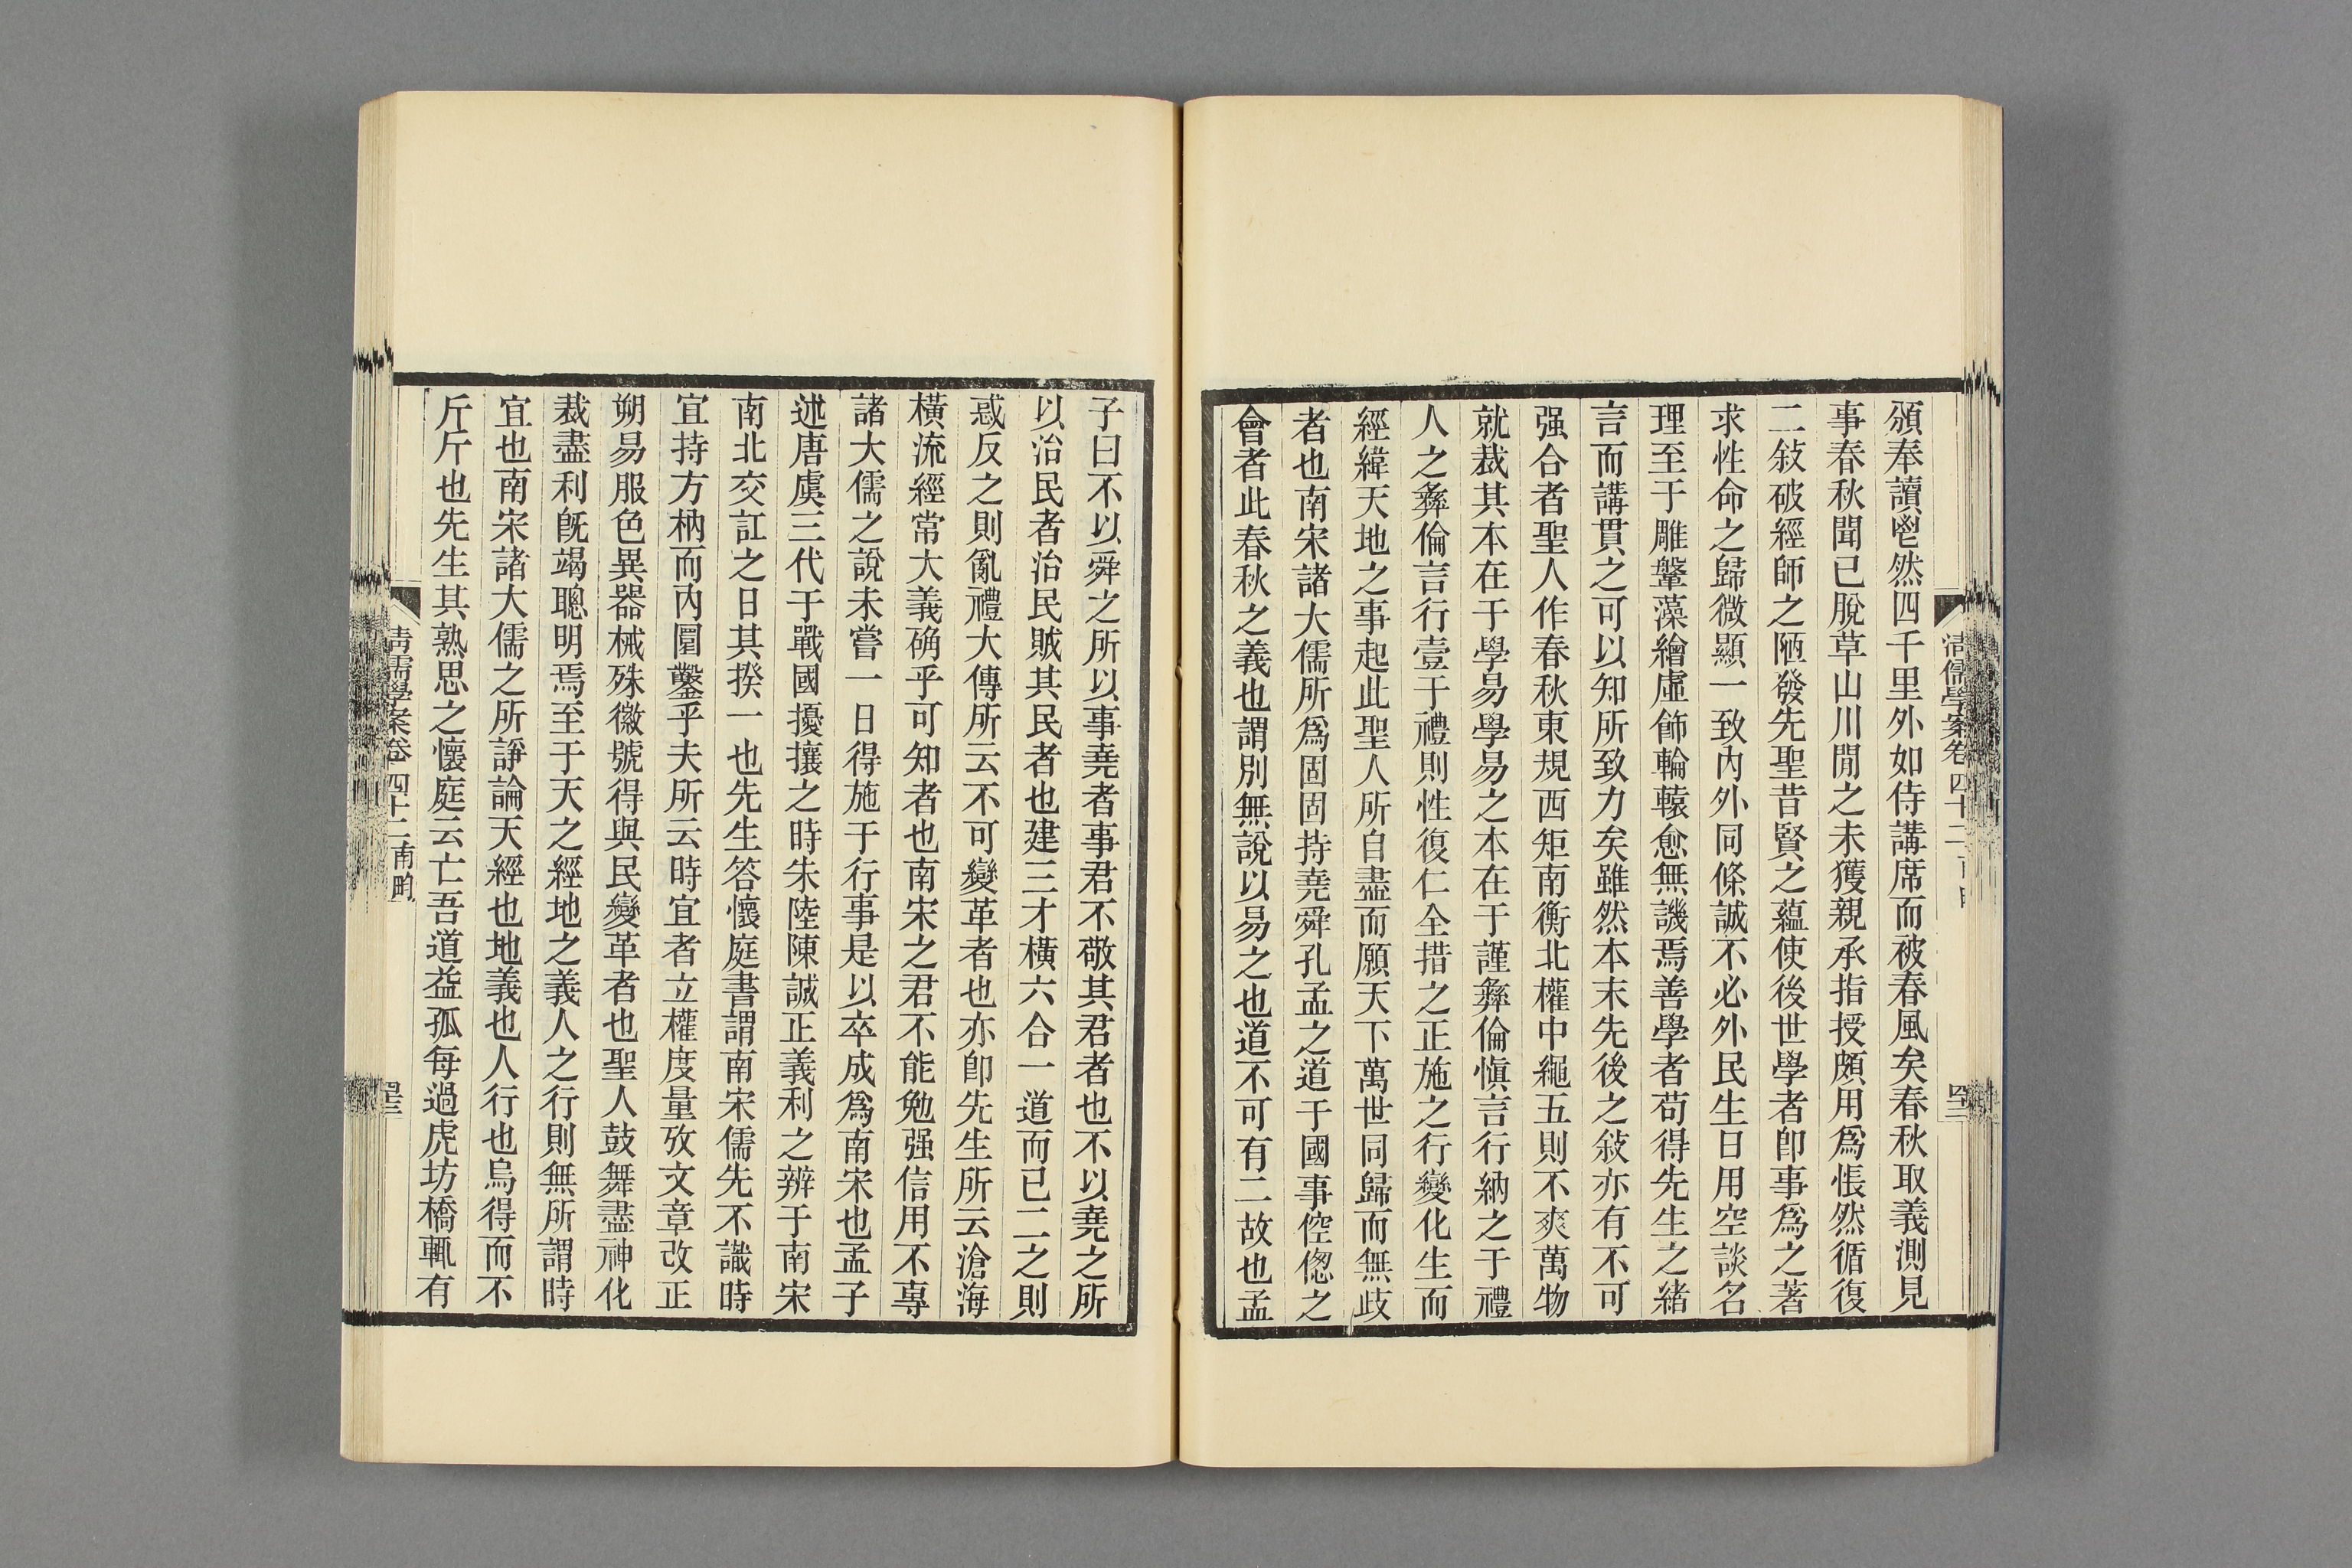 頒奉讀鬯然四千里外如侍講席而被春風矣春秋取義測見
事春秋聞已脫草山川閒之未獲親承指授頗用爲悵然循復
二敍破經師之陋發先聖昔賢之蘊使後世學者卽事爲之著
求性命之歸微顯一致內外同條誠不必外民生日用空談名
理至于雕鞶藻繪虛飾輪轅愈無譏焉善學者苟得先生之緒
言而講貫之可以知所致力矣雖然本末先後之敍亦有不可
强合者聖人作春秋東規西矩南衡北權中繩五則不爽萬物
就裁其本在于學易學易之本在于謹彝倫愼言行納之于禮
人之彝倫言行壹于禮則性復仁全措之正施之行變化生而
經緯天地之事起此聖人所自盡而願天下萬世同歸而無歧
者也南宋諸大儒所爲固固持堯舜孔孟之道于國事倥傯之
會者此春秋之義也謂別無說以易之也道不可有二故也孟
淸儒學案卷四十二
子曰不以舜之所以事堯者事君不敬其君者也不以堯之所
以治民者治民賊其民者也建三才橫六合一道而已二之則
惑反之則亂禮大傳所云不可變革者也亦卽先生所云滄海
橫流經常大義确乎可知者也南宋之君不能勉强信用不專
諸大儒之說未嘗一日得施于行事是以卒成爲南宋也孟子
述唐虞三代于戰國擾攘之時朱陸陳誠正義利之辨于南宋
南北交訌之日其揆一也先生答懷庭書謂南宋儒先不識時
宜持方枘而內圜鑿乎夫所云時宜者立權度量攷文章改正
朔易服色異器械殊徽號得與民變革者也聖人鼓舞盡神化
裁盡利旣竭聰明焉至于天之經地之義人之行則無所謂時
宜也南宋諸大儒之所諍論天經也地義也人行也烏得而不
斤斤也先生其熟思之懷庭云亡吾道益孤每過虎坊橋輒有
淸儒學案卷四十二 南畇